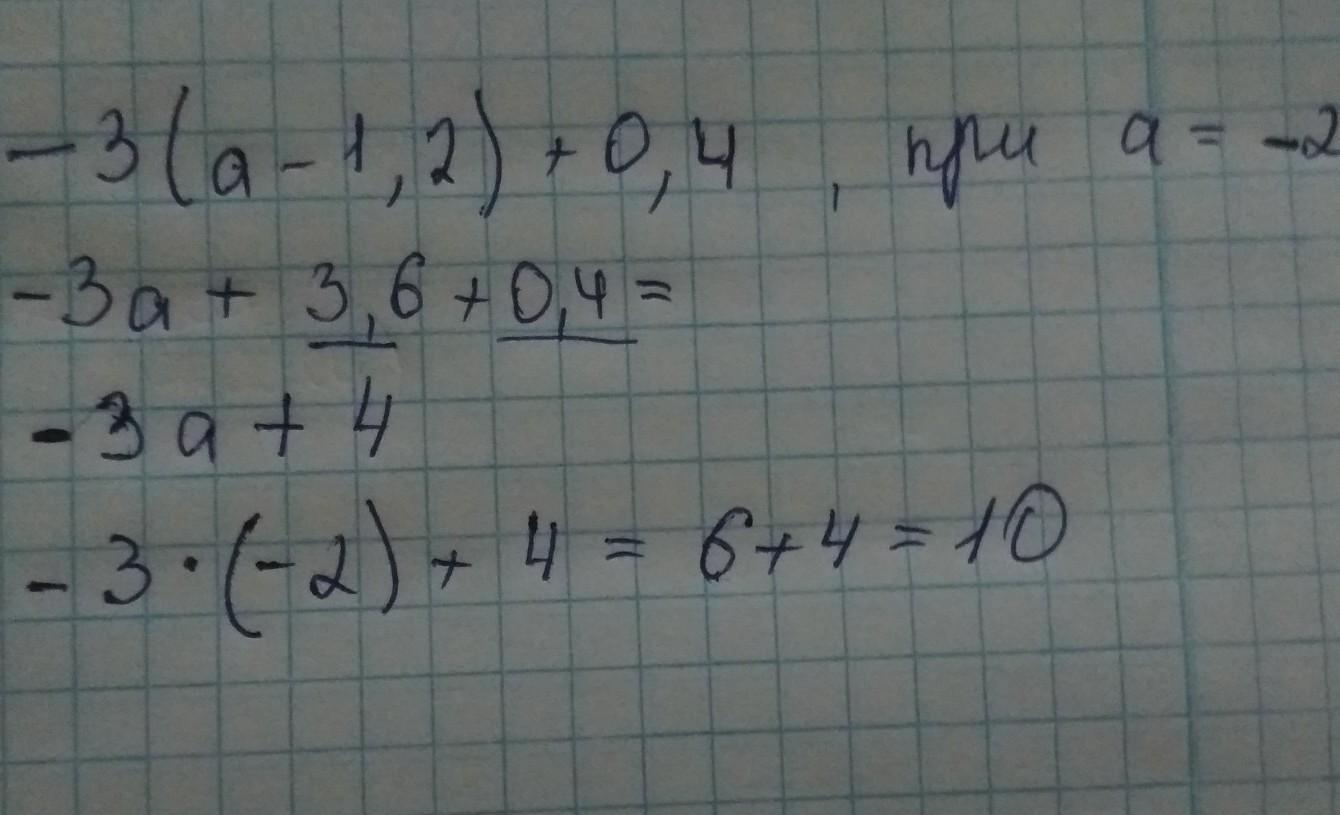 -3(a-1,2)+0,4 , при a=-2
-3a+3,6+0,4=
-3a+4
-3·(-2)+4=6+4=10